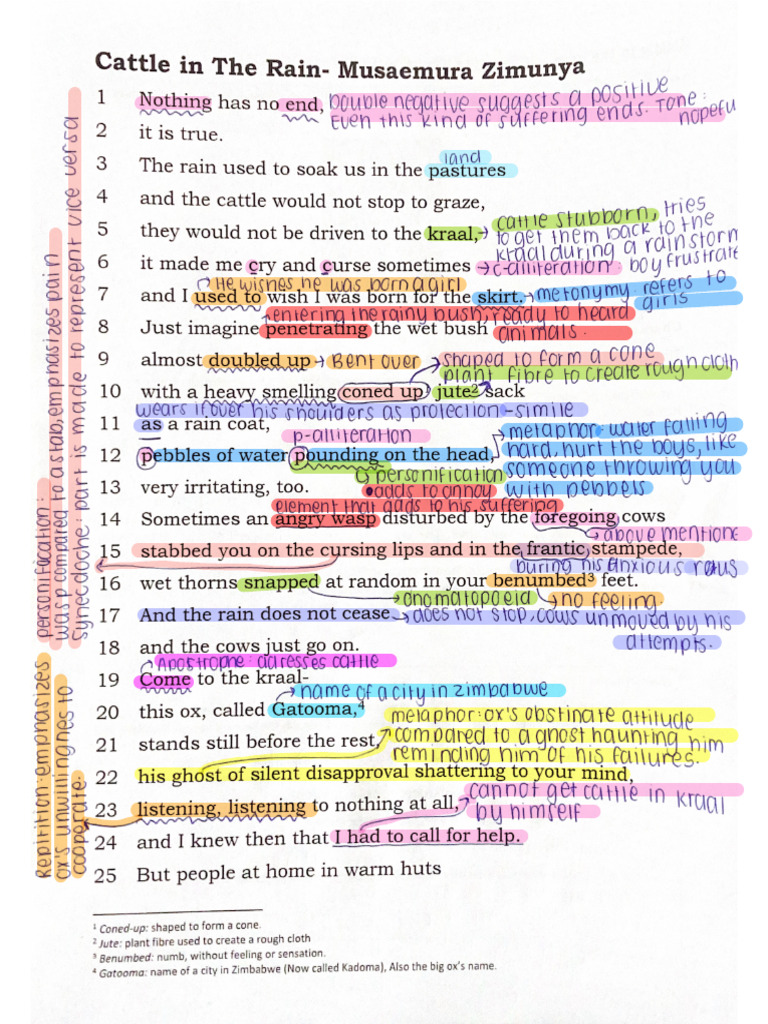 Cattle in The Rain- Musaemura Zimunya
1 Nothing has no end, Double negative suggests a positive
Even this kind of suffering ends. Tone: hopefu
2 it is true.
land
3 The rain used to soak us in the pastures
4 and the cattle would not stop to graze,
5 they would not be driven to the kraal, cattle stubborn, tries
to get them back to the
kraal during a rainstorm
6 it made me cry and curse sometimes c-alliteration: boy frustrate
He wishes he was born a girl
7 and I used to wish I was born for the skirt. metonymy. refers to
girls
entering the rainy bush, ready to heard
8 Just imagine penetrating the wet bush animals.
9 almost doubled up Bent over shaped to form a cone
plant fibre to create rough cloth
10 with a heavy smelling coned up¹ jute² sack
wears it over his shoulders as protection - simile
11 as a rain coat,
p-alliteration
metaphor: water falling
12 pebbles of water pounding on the head, hard, hurt the boys, like
personification someone throwing you
13 very irritating, too. adds to annoy with pebbels
element that adds to his suffering
14 Sometimes an angry wasp disturbed by the foregoing cows
above mentione
15 stabbed you on the cursing lips and in the frantic stampede,
during his anxious
16 wet thorns snapped at random in your benumbed³ feet.
onomatopoeia no feeling.
17 And the rain does not cease does not stop. cows unmoved by his
attempts.
18 and the cows just go on.
Apostrophe: adresses cattle
19 Come to the kraal-
name of a city in zimbabwe
20 this ox, called Gatooma,⁴
metaphor: ox's obstinate attitude
21 stands still before the rest, compared to a ghost haunting him
reminding him of his failures.
22 his ghost of silent disapproval shattering to your mind,
23 listening, listening to nothing at all, cannot get cattle in kraal
by himself
24 and I knew then that I had to call for help.
25 But people at home in warm huts
personification:
wasp compared to a stab, emphasizes pain
synecdoche: part is made to represent vice versa
Repitition-emphasizes
ox's unwillingnes to
cooperate.
¹ Coned-up: shaped to form a cone.
² Jute: plant fibre used to create a rough cloth
³ Benumbed: numb, without feeling or sensation.
⁴ Gatooma: name of a city in Zimbabwe (Now called Kadoma), Also the big ox's name.